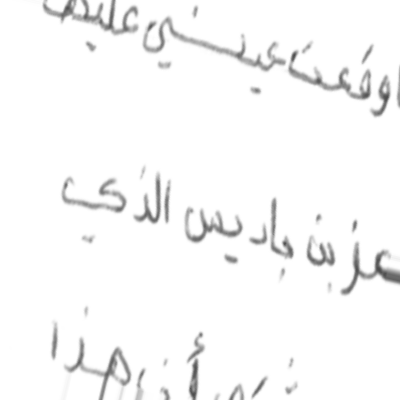 وقعت عيني عليها
عز بن باديس الذي
أن هذا